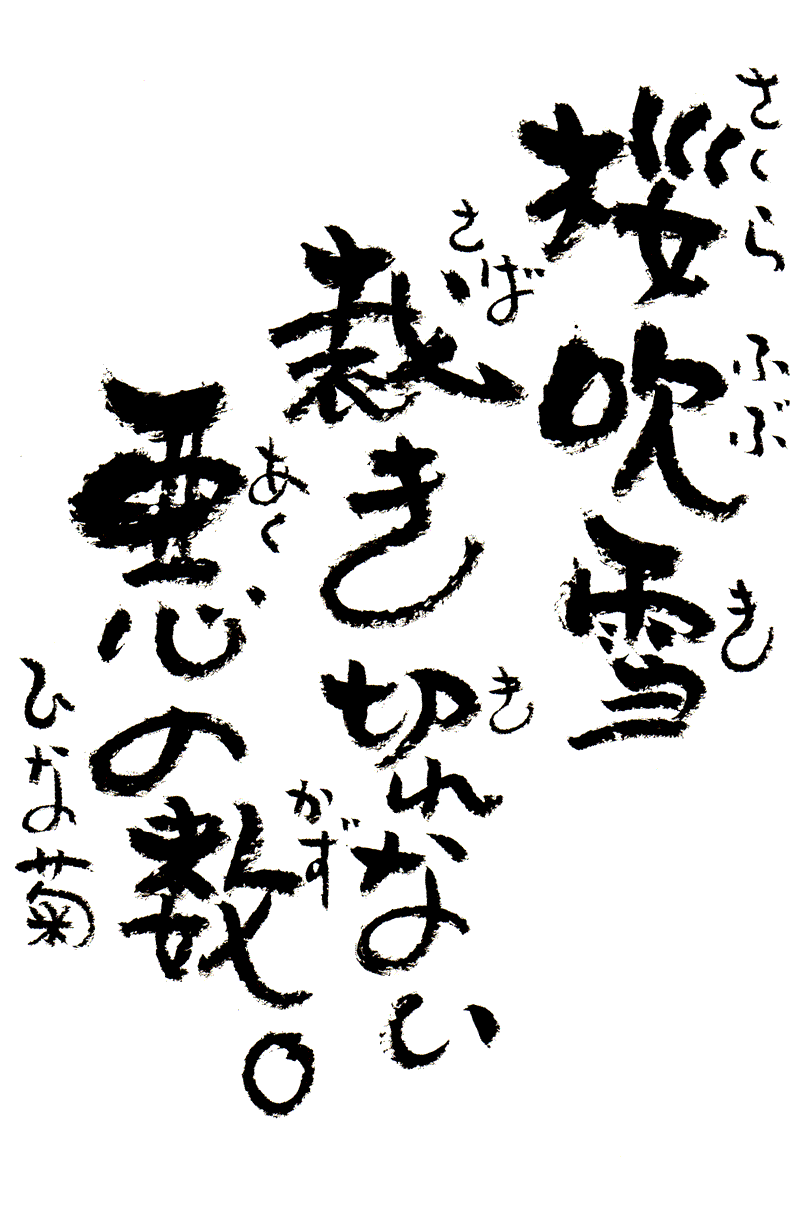 桜吹雪
さくら ふぶ き
裁き切れない
さば き
悪の数。
あく かず
ひなの菊